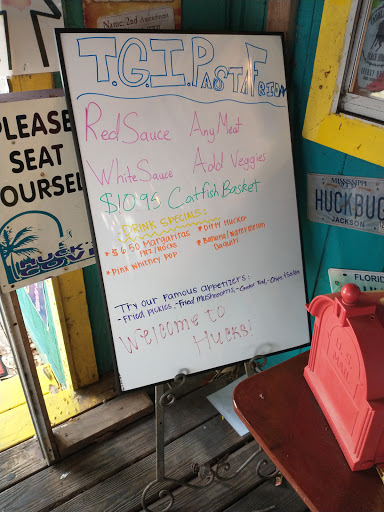 Name: 2nd Amendment
T.G.I. Pasta Friday
Red Sauce Any Meat
White Sauce Add Veggies
$10.95 Catfish Basket
DRINK SPECIALS:
* $6.50 Margaritas
FRZ/ROCKS
* Pink Whitney Pop
* Dirty Hucker
* Banana/Watermelon
Daquiri
Try our famous appetizers:
- Fried Pickles - Fried Mushrooms - Gator Tail
Welcome to
Hucks!
PLEASE
SEAT
YOURSEL
HUCK
COVE
MISSISSIPPI
HUCKBUG
JACKSON
FLORIDA
U.S. MAIL